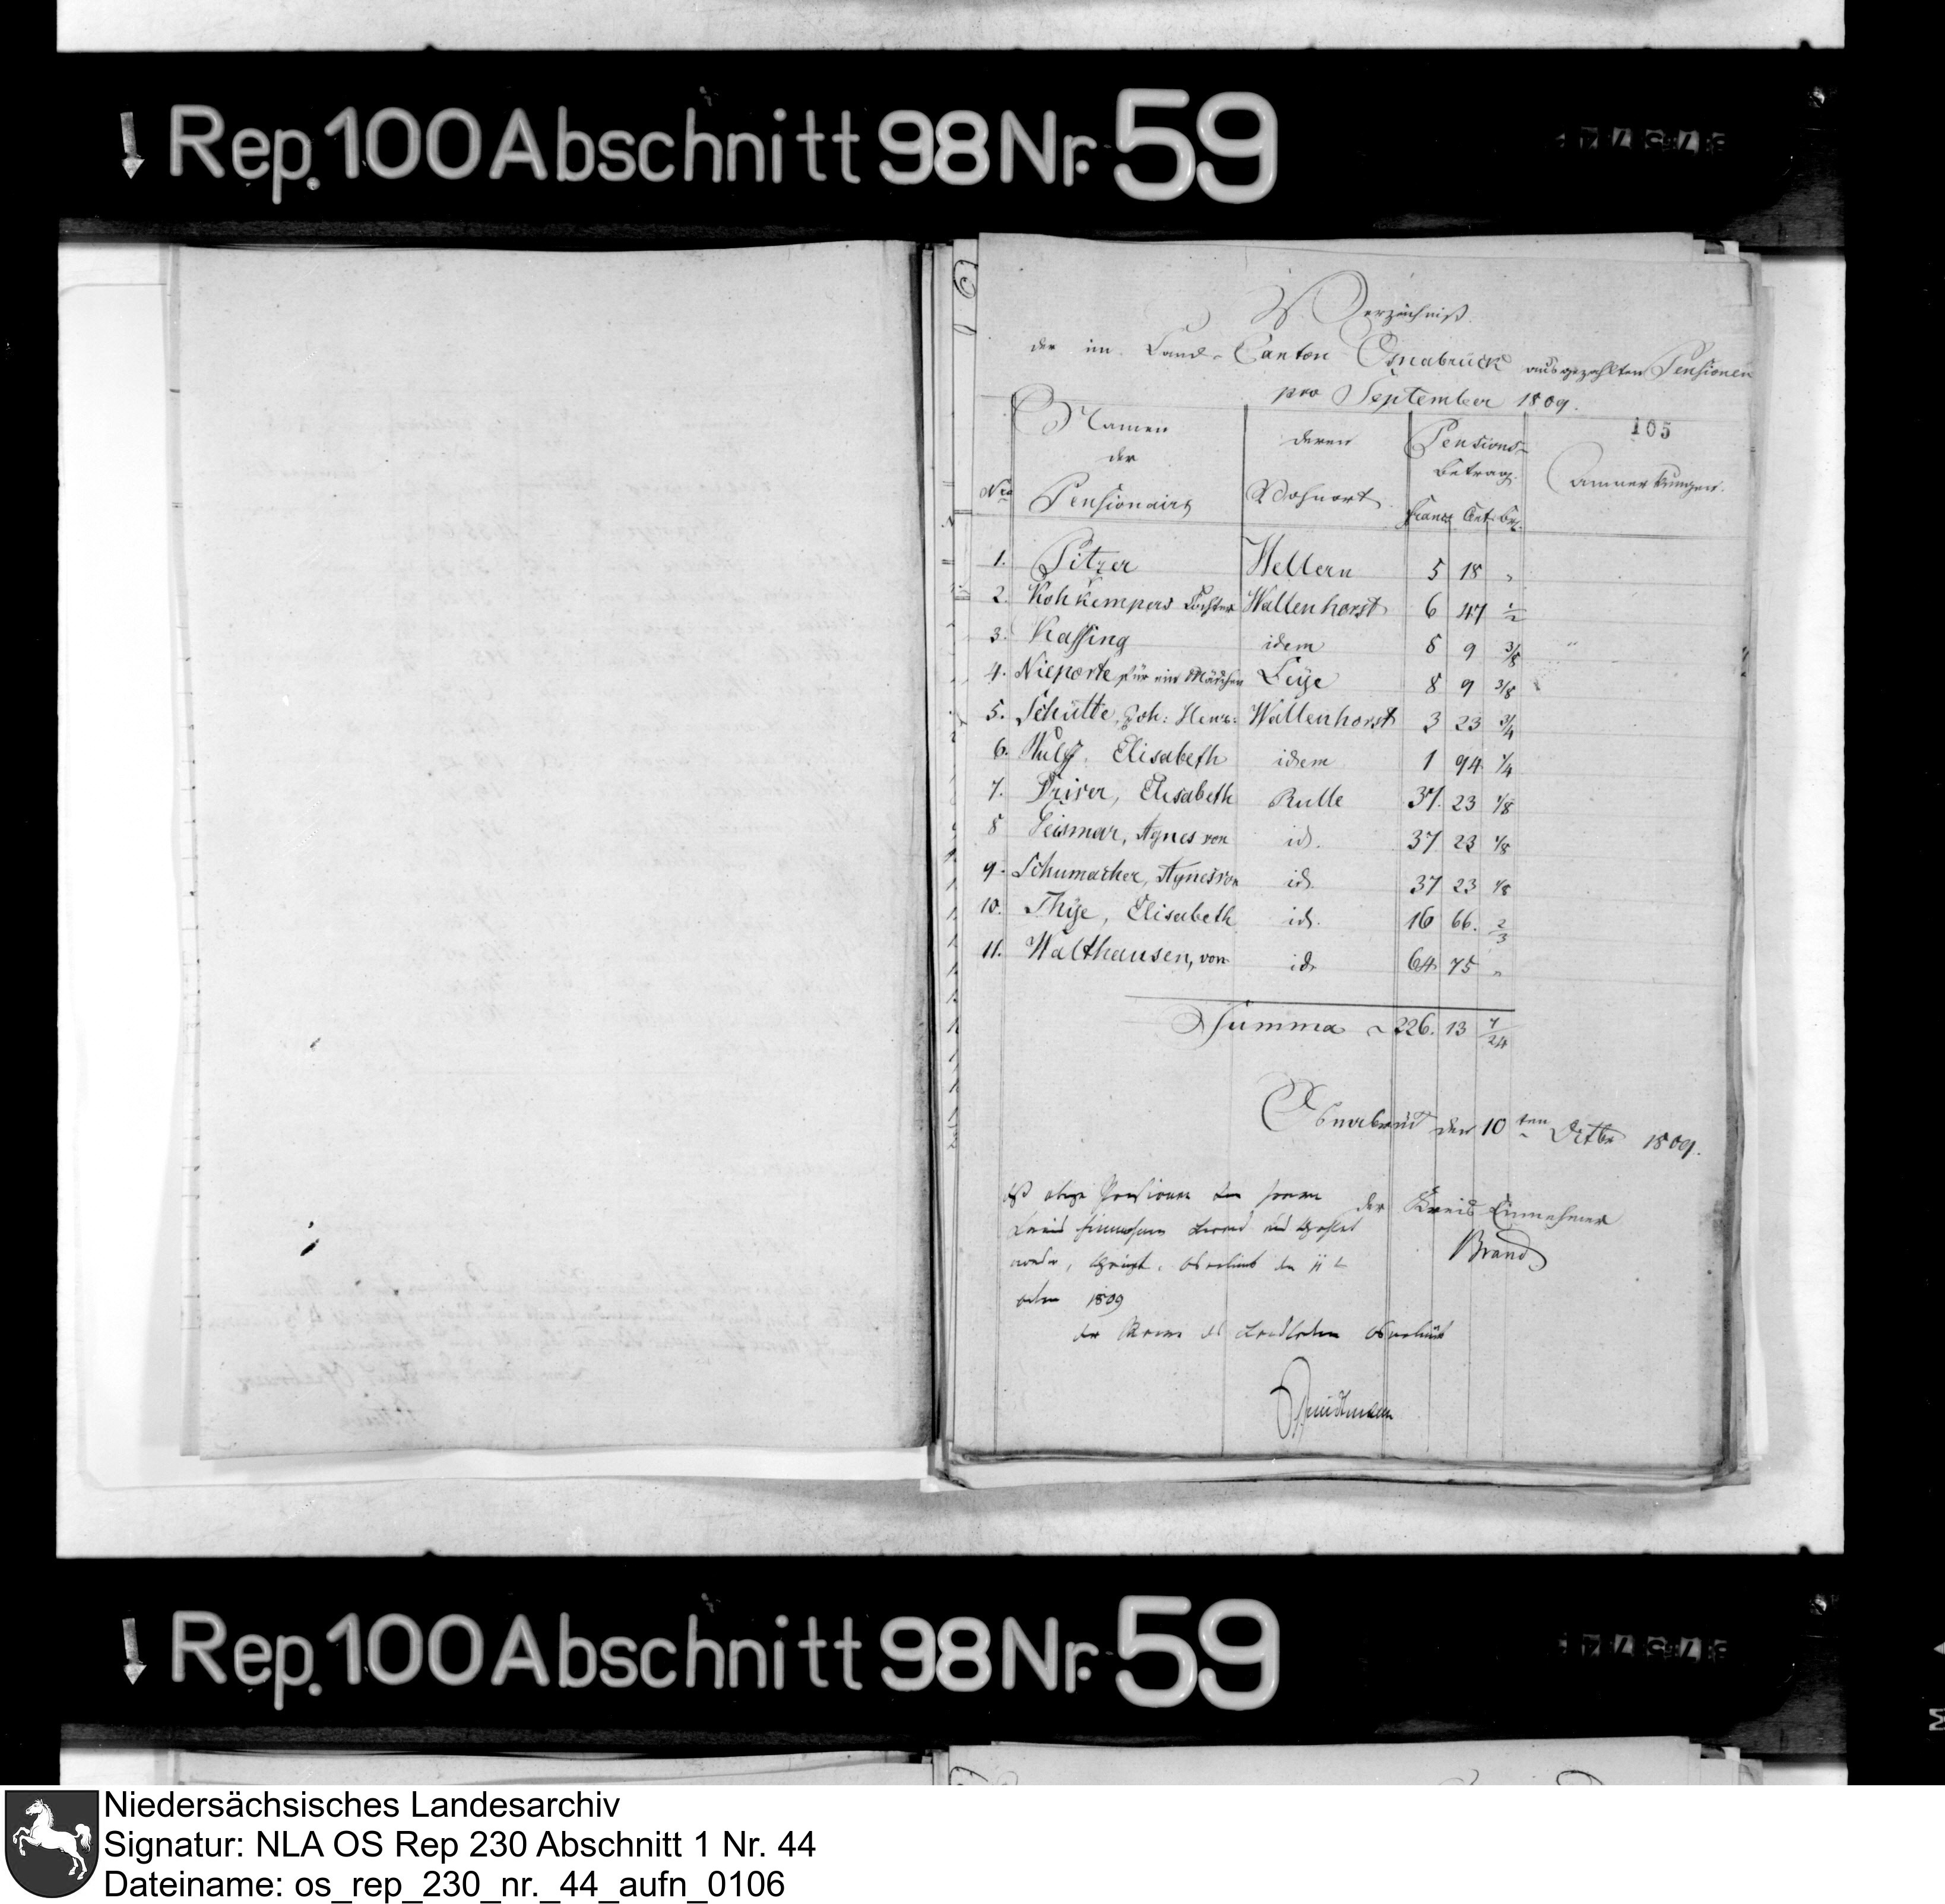 Rep. 100 Abschnitt 98 Nr. 59
Verzeichniß
der im Land-Canton Osnabrück ausgezahlten Pensionen
pro September 1809.
105
Nro Namen der Pensionairs deren Wohnort Pensions-Betrag. Anmerkungen.
Franc Cent
1. Pitzer Hellern 5 18 "
2. Kohkempers Tochter Wallenhorst 6 47 1/2
3. Kassing idem 8 9 3/8
4. Nieporte für ein Mädchen Leije 8 9 3/8
5. Schütte, Joh: Henr: Wallenhorst 3 23 3/4
6. Wulf. Elisabeth idem 1 94 1/4
7. Driver, Elisabeth Rulle 37. 23 1/8
8 Geismar, Agnes von id. 37 23 1/8
9. Schumacher, Agnes von id. 37 23 1/8
10. Thije, Elisabeth id. 16 66. 2/3
11. Walthausen, von id. 64 75 "
Summa 226. 13 7/24
Osnabrück den 10ten Octbr 1809.
der Kreis Einnehmer
Brand
Daß obige Pensionen
1809
Niedersächsisches Landesarchiv
Signatur: NLA OS Rep 230 Abschnitt 1 Nr. 44
Dateiname: os_rep_230_nr._44_aufn_0106
Rep. 100 Abschnitt 98 Nr. 59